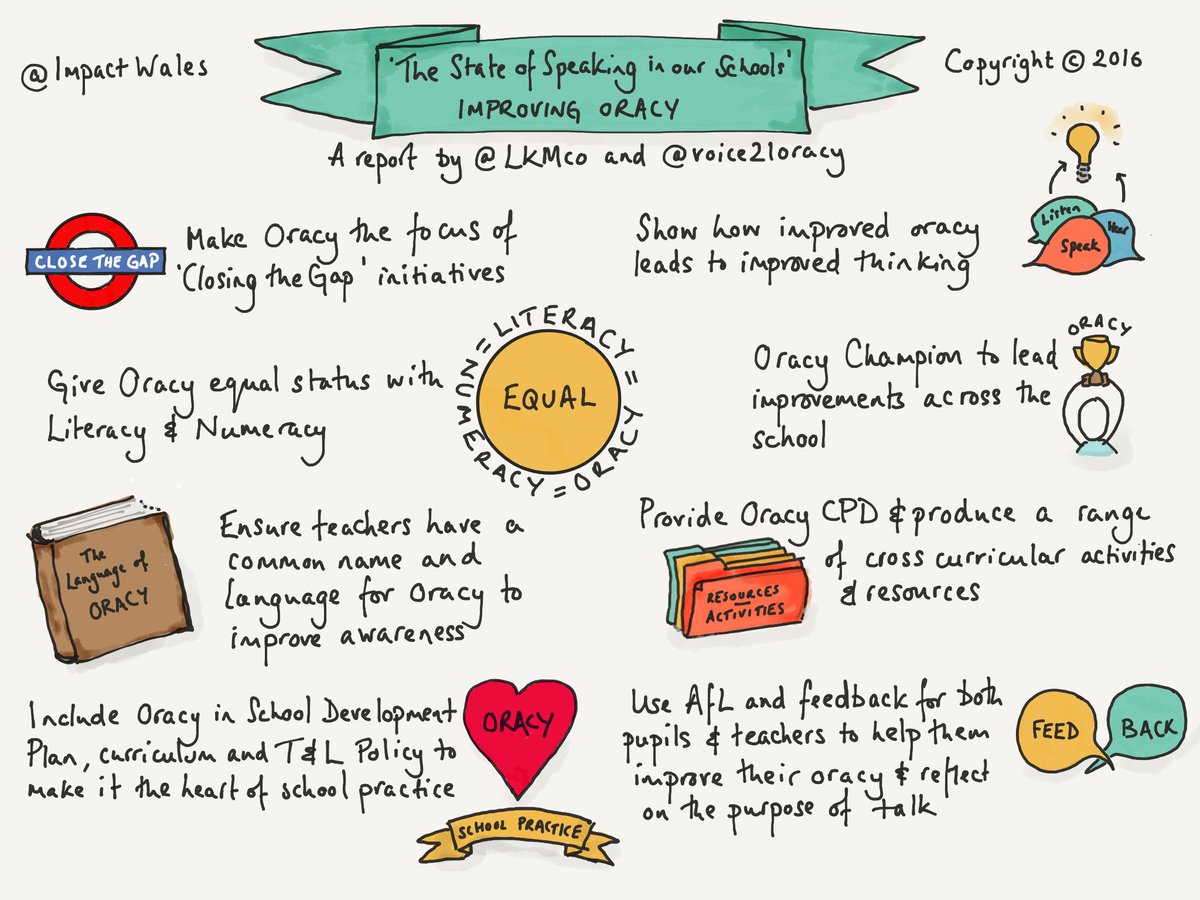 @ImpactWales
'The State of Speaking in our Schools'
IMPROVING ORACY
Copyright © 2016
A report by @LKMco and @voice21oracy
CLOSE THE GAP
Make Oracy the focus of
'Closing the Gap' initiatives
Show how improved oracy
leads to improved thinking
Listen
Speak
Hear
Give Oracy equal status with
Literacy & Numeracy
EQUAL
NUMERACY = LITERACY = ORACY =
Oracy Champion to lead
improvements across the
school
ORACY
The
Language of
ORACY
Ensure teachers have a
common name and
language for Oracy to
improve awareness
Provide Oracy CPD & produce a range
of cross curricular activities
& resources
RESOURCES
ACTIVITIES
Include Oracy in School Development
Plan, curriculum and T&L Policy to
make it the heart of school practice
ORACY
SCHOOL PRACTICE
Use AfL and feedback for both
pupils & teachers to help them
improve their oracy & reflect
on the purpose of talk
FEED
BACK